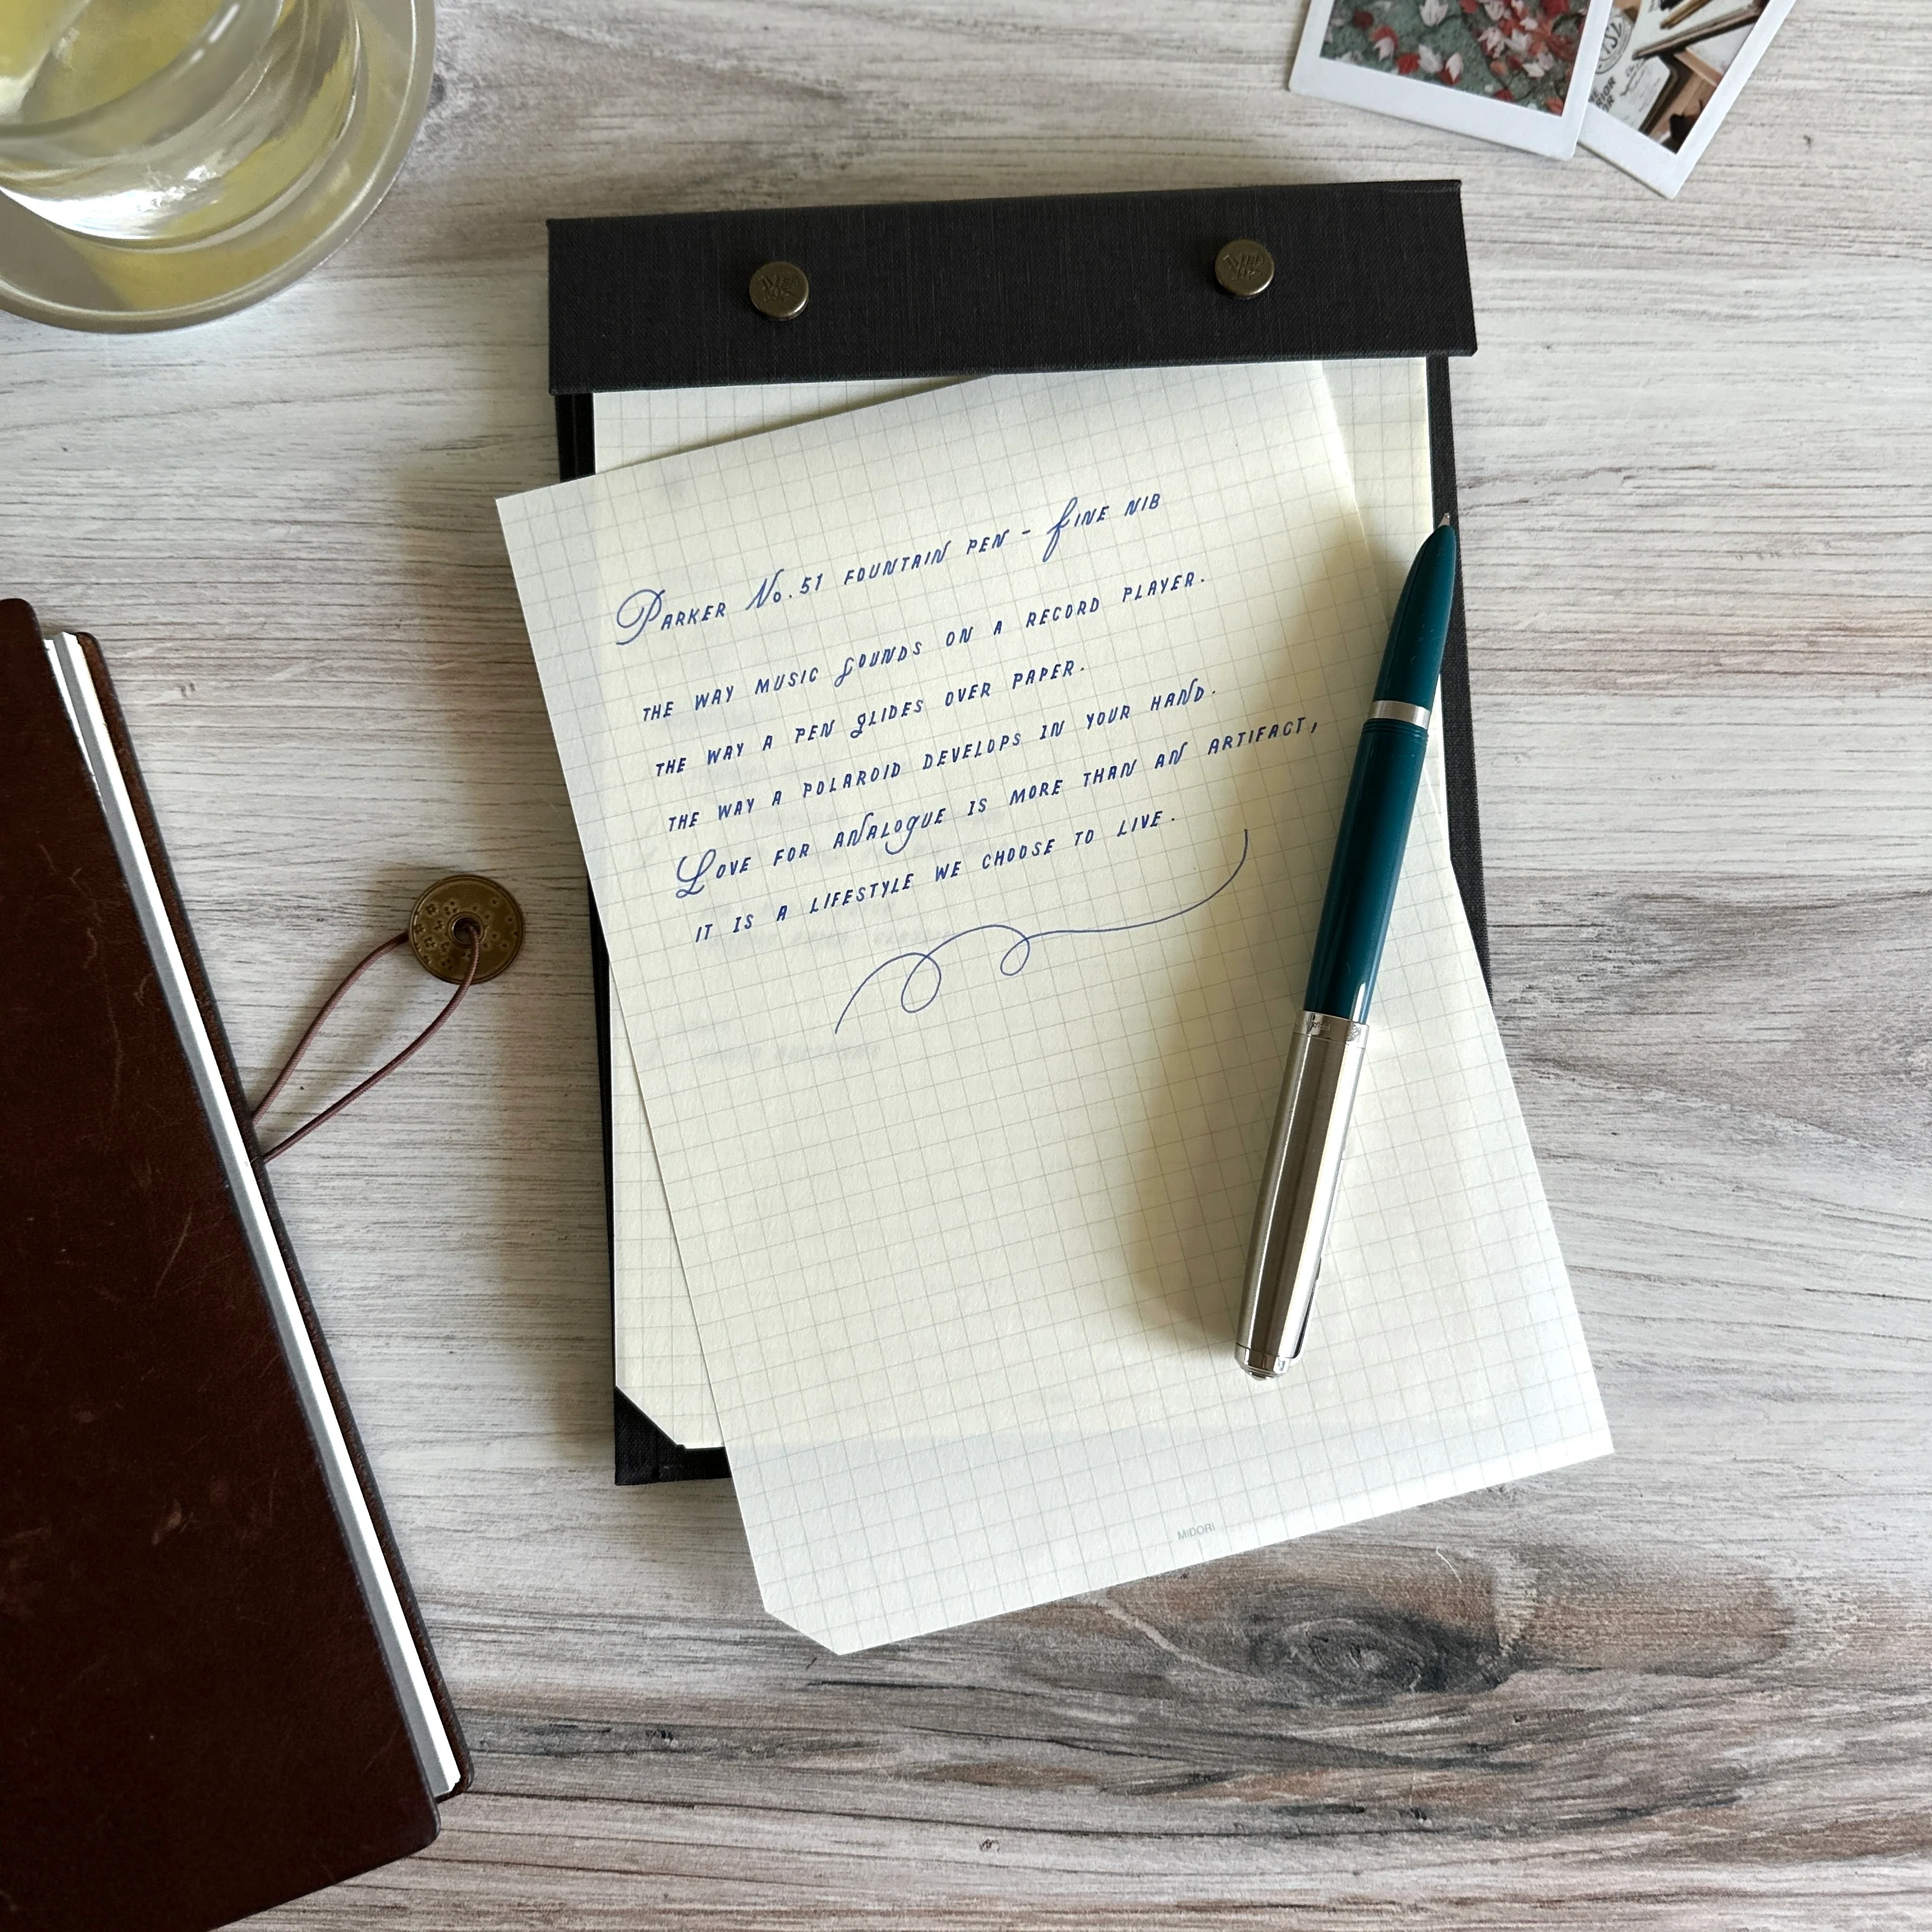 Parker No. 51 fountain pen - Fine nib
the way music sounds on a record player.
the way a pen glides over paper.
the way a polaroid develops in your hand.
Love for analogue is more than an artifact,
it is a lifestyle we choose to live.
MIDORI